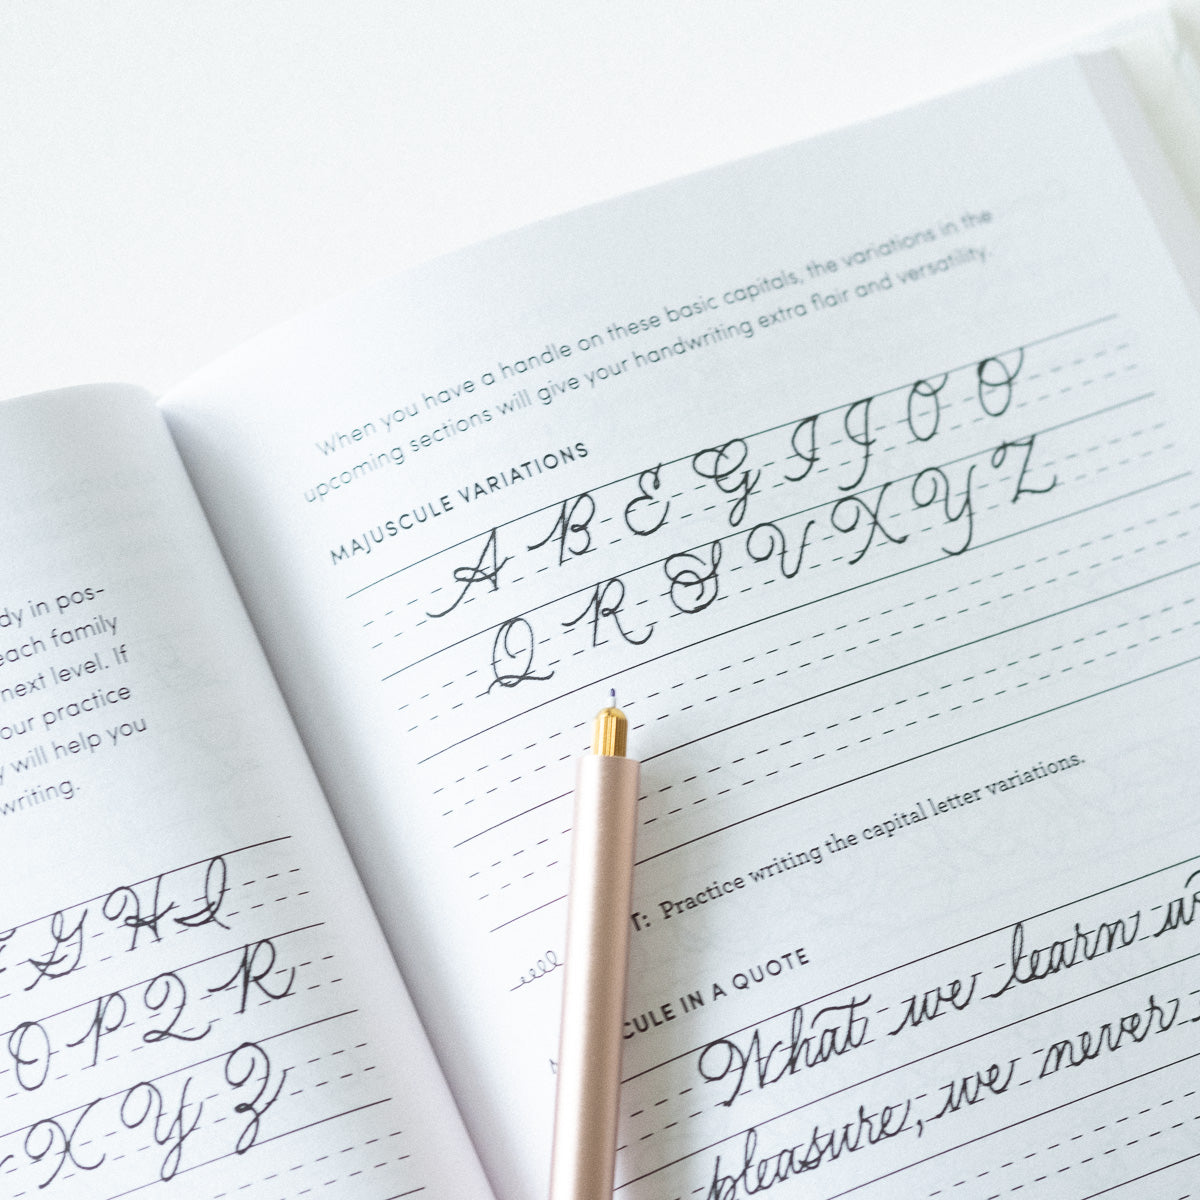 dy in pos-
each family
next level. If
our practice
will help you
writing.
G H I
O P Q R
X Y Z
When you have a handle on these basic capitals, the variations in the
upcoming sections will give your handwriting extra flair and versatility.
MAJUSCULE VARIATIONS
A B E G I J O O
Q R S V X Y Z
T: Practice writing the capital letter variations.
CULE IN A QUOTE
What we learn w
pleasure, we never